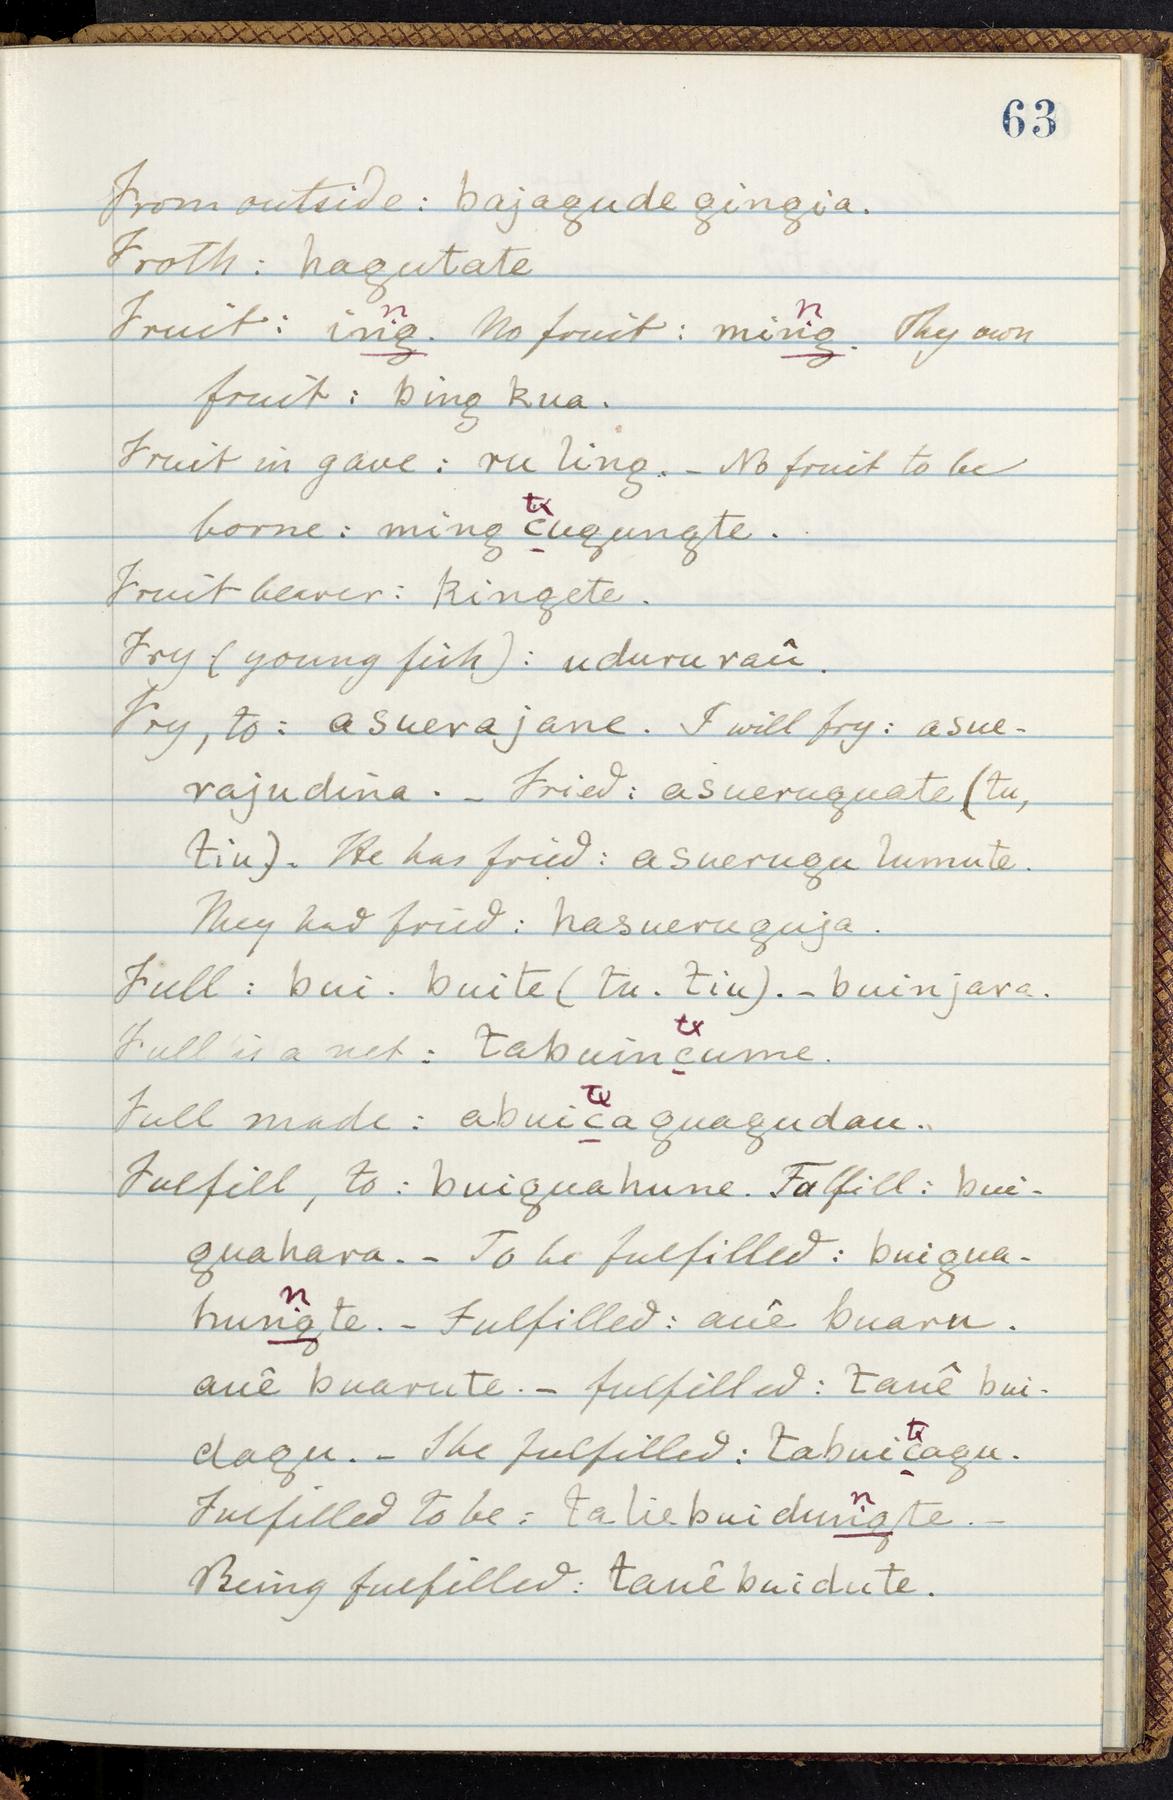 63
From outside: bajagude gingia.
Froth: hagutate
Fruit: ing. No fruit: ming. Thy own
n n
fruit: bing kua.
Fruit in gave: ru ling. - No fruit to be
borne: ming cugungte.
tx
Fruit bearer: kingete.
Fry (young fish): udururaû.
Fry, to: asuerajane. I will fry: asue-
rajudina. - Fried: asueruguate (tu,
tiu). He has fried: asuerugu lumute.
They had fried: hasueruguja.
Full: bui. buite (tu. tiu). - buinjara.
Full is a net: tabuincume.
tx
Full made: abuicaguagudau.
tx
Fulfill, to: buiguahune. Fulfill: bui-
guahara. - To be fulfilled: buigua-
hungte. - Fulfilled: auê buaru.
n
auê buarute. - fulfilled: tauê bui-
dagu. - She fulfilled: tabuicagu.
tx
Fulfilled to be: ta lie buidungte. -
n
Being fulfilled: tauê buidute.